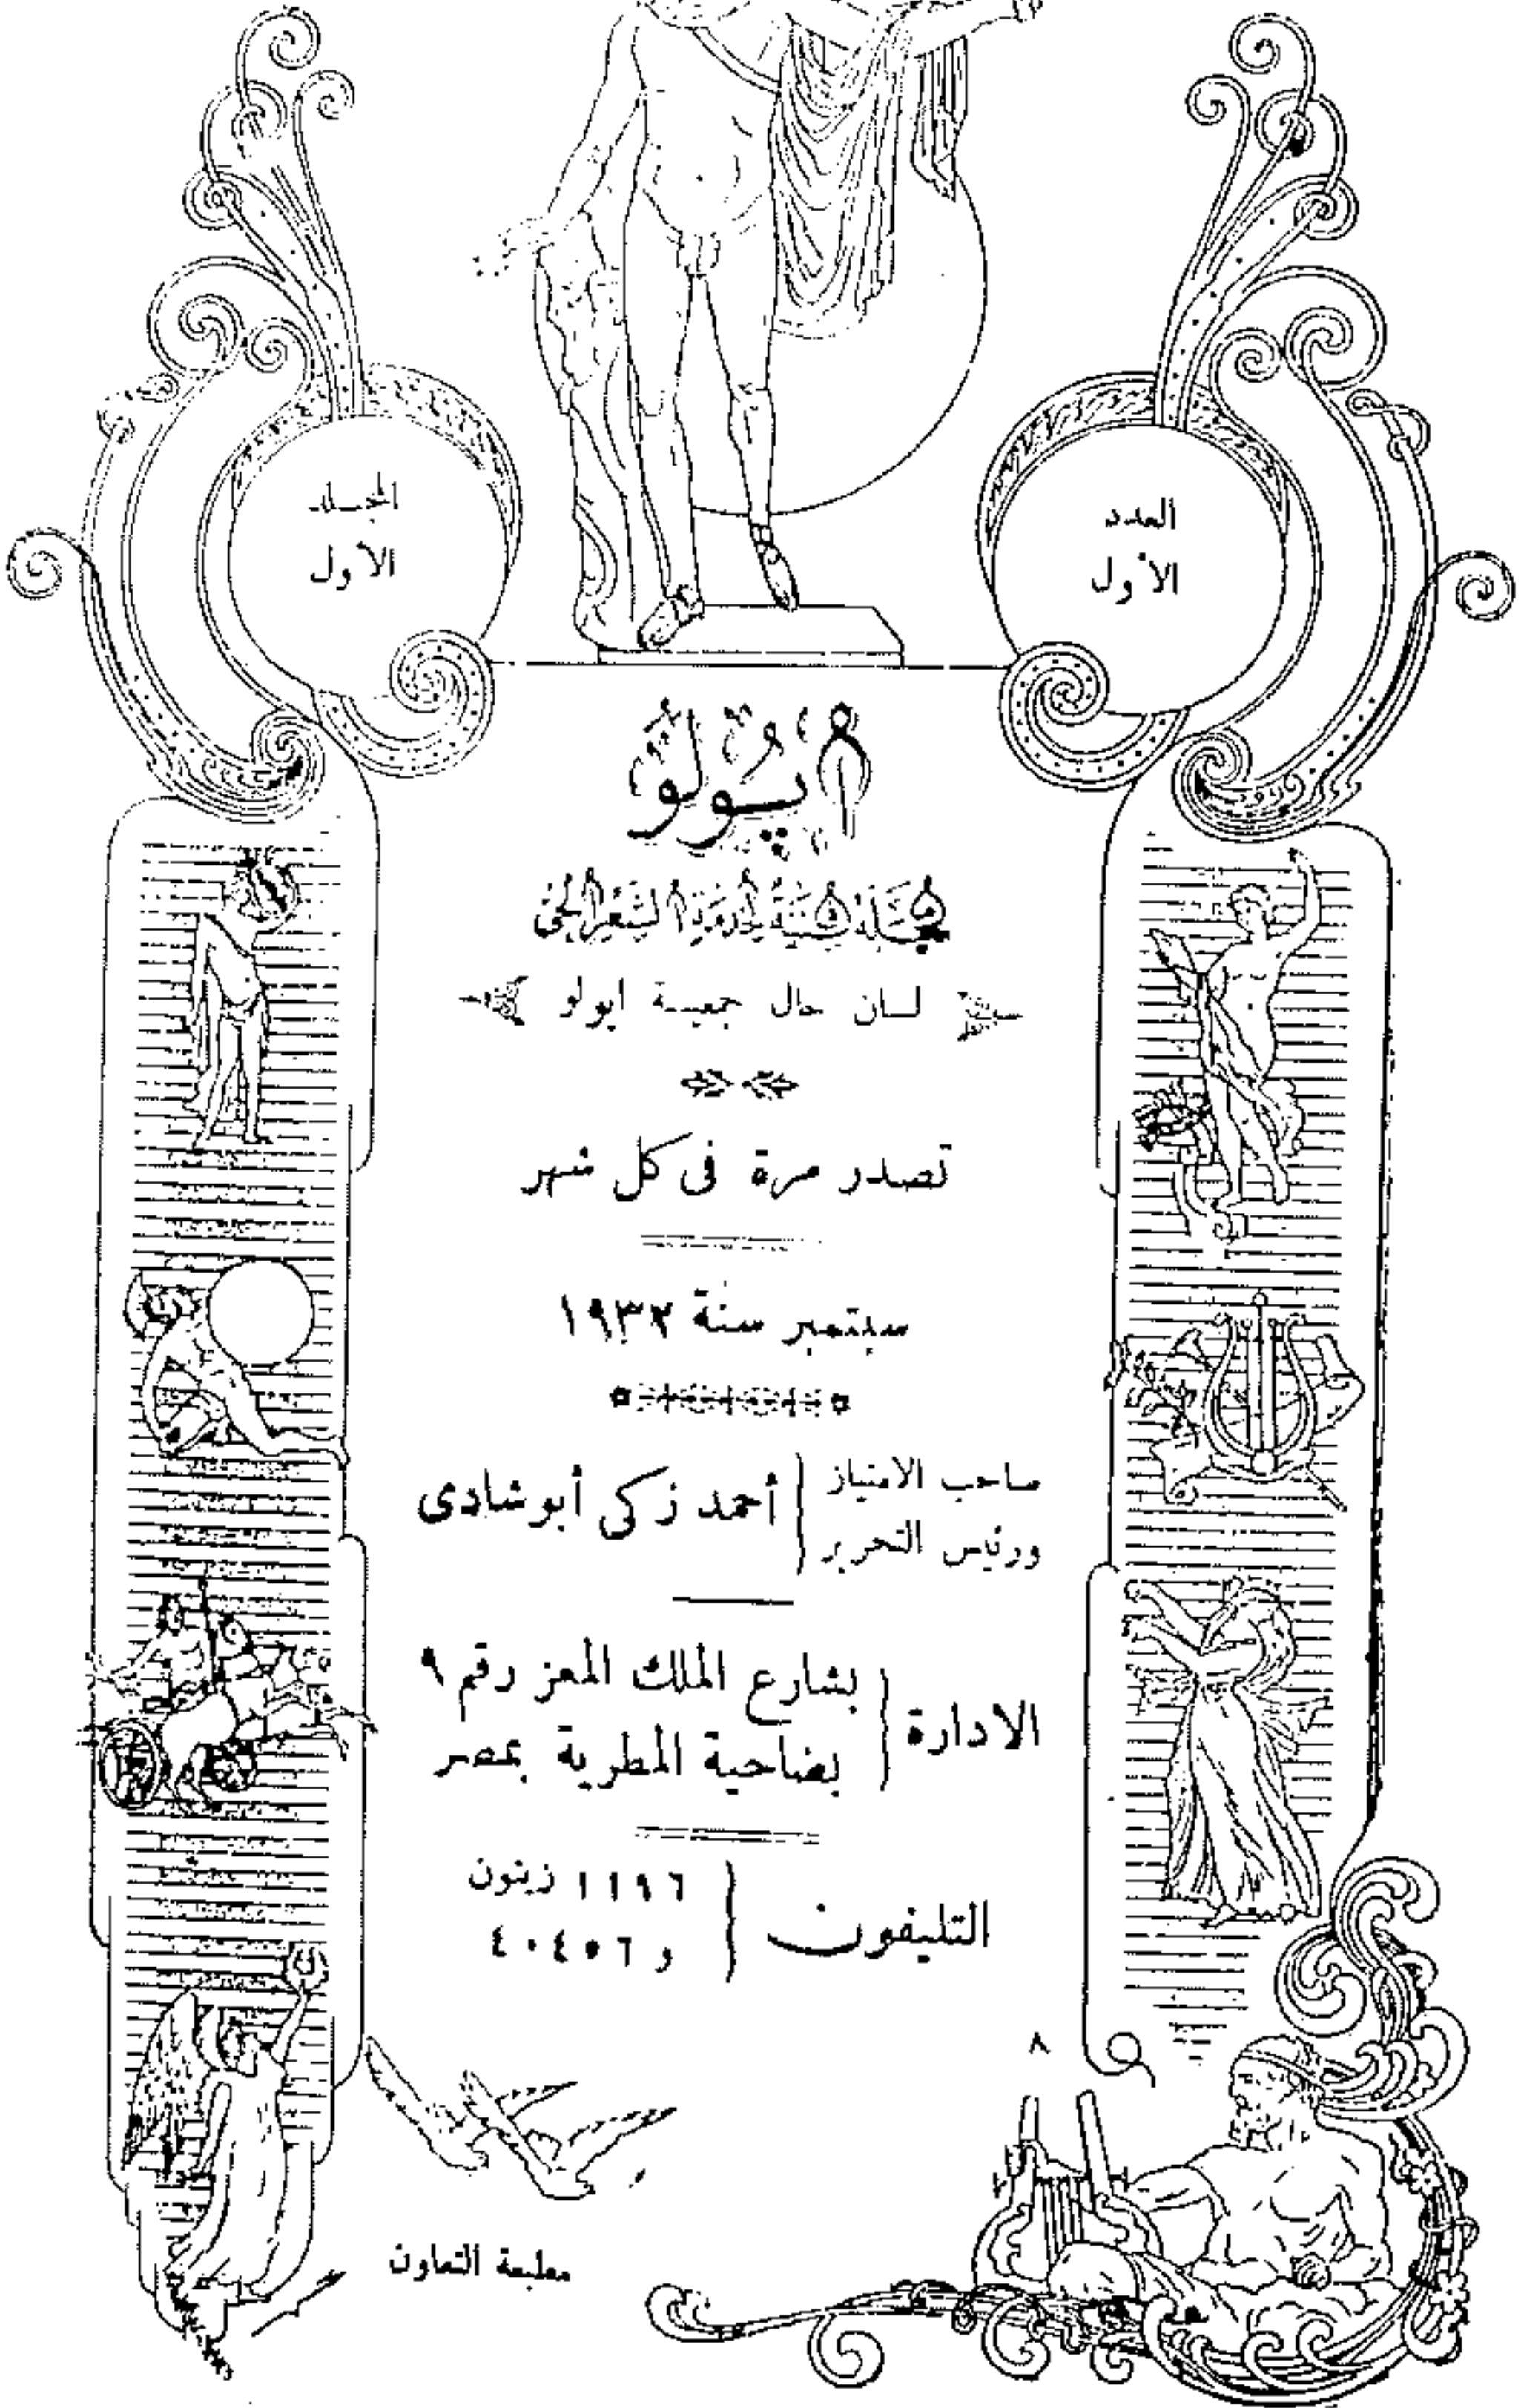 العدد
الأول
المجلد
الأول
أپولو
مجلة فنية لخدمة الشعر الحى
لسان حال جمعية ابولو
تصدر مرة فى كل شهر
سبتمبر سنة ١٩٣٢
صاحب الامتياز
ورئيس التحرير
أحمد زكى أبو شادى
الادارة
بشارع الملك المعز رقم ٩
بضاحية المطرية بمصر
التليفون
١١٩٦ زيتون
و ٤٠٤٥٦
٨
مطبعة التعاون